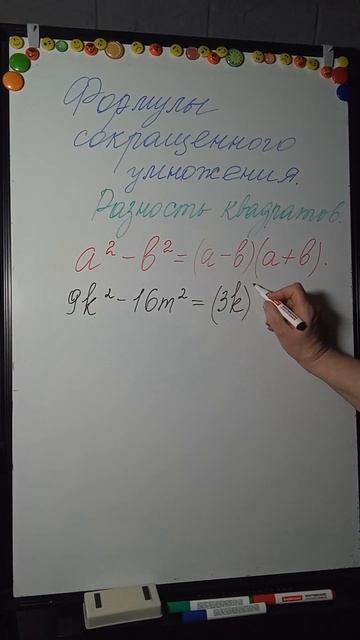 Формулы
сокращенного
умножения.
Разность квадратов.
a² - в² = (a-в)(a+в).
9k² - 16m² = (3k)